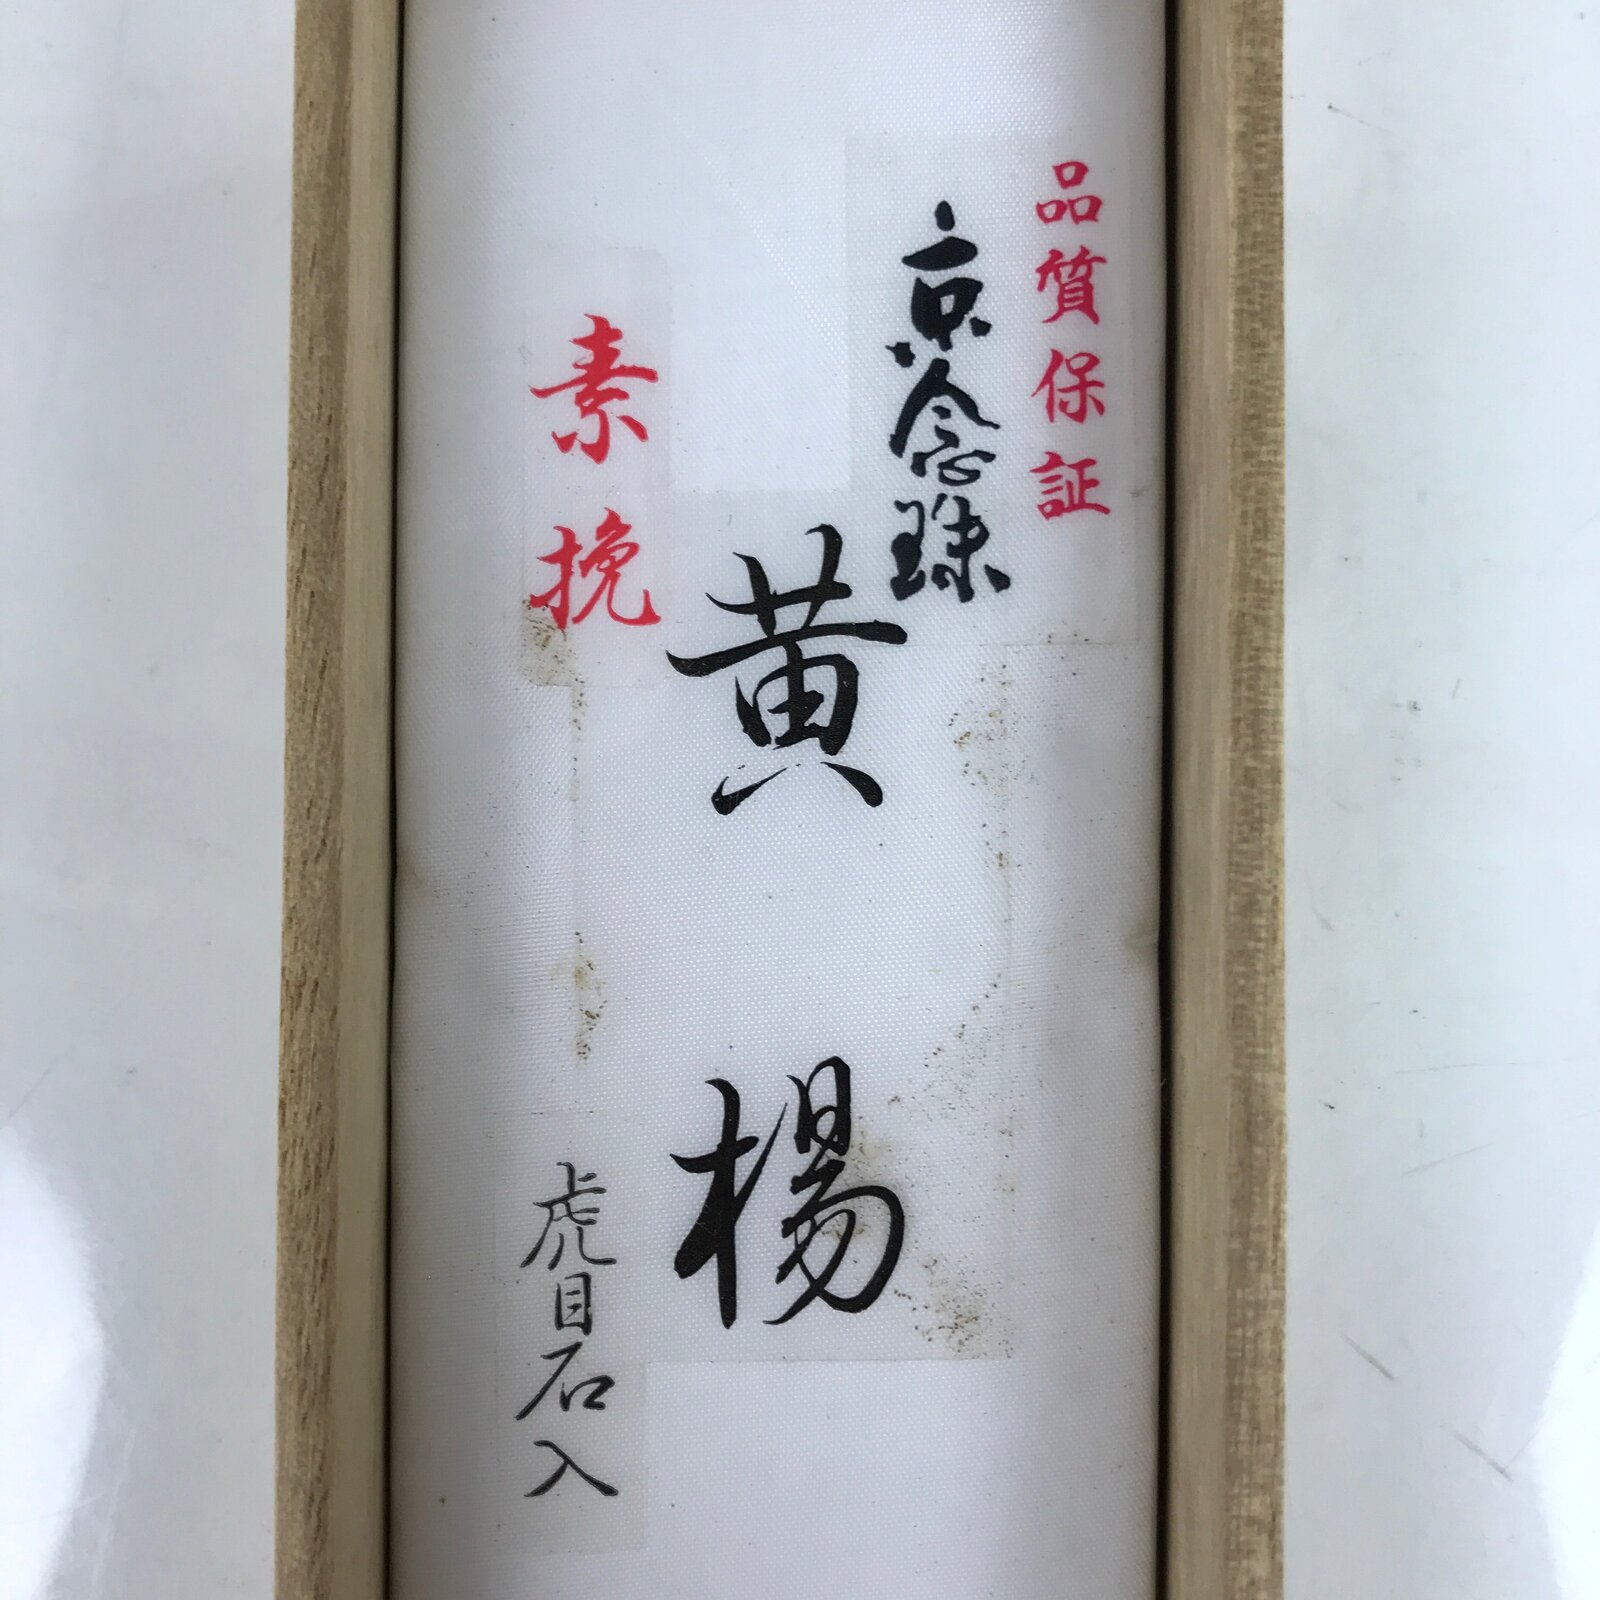 品質保証
京念珠
黄楊
素挽
虎目石入